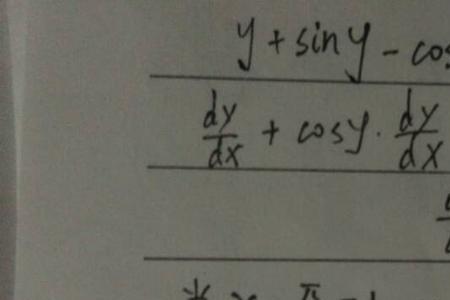 y + sin y - cos
dy/dx + cos y · dy/dx